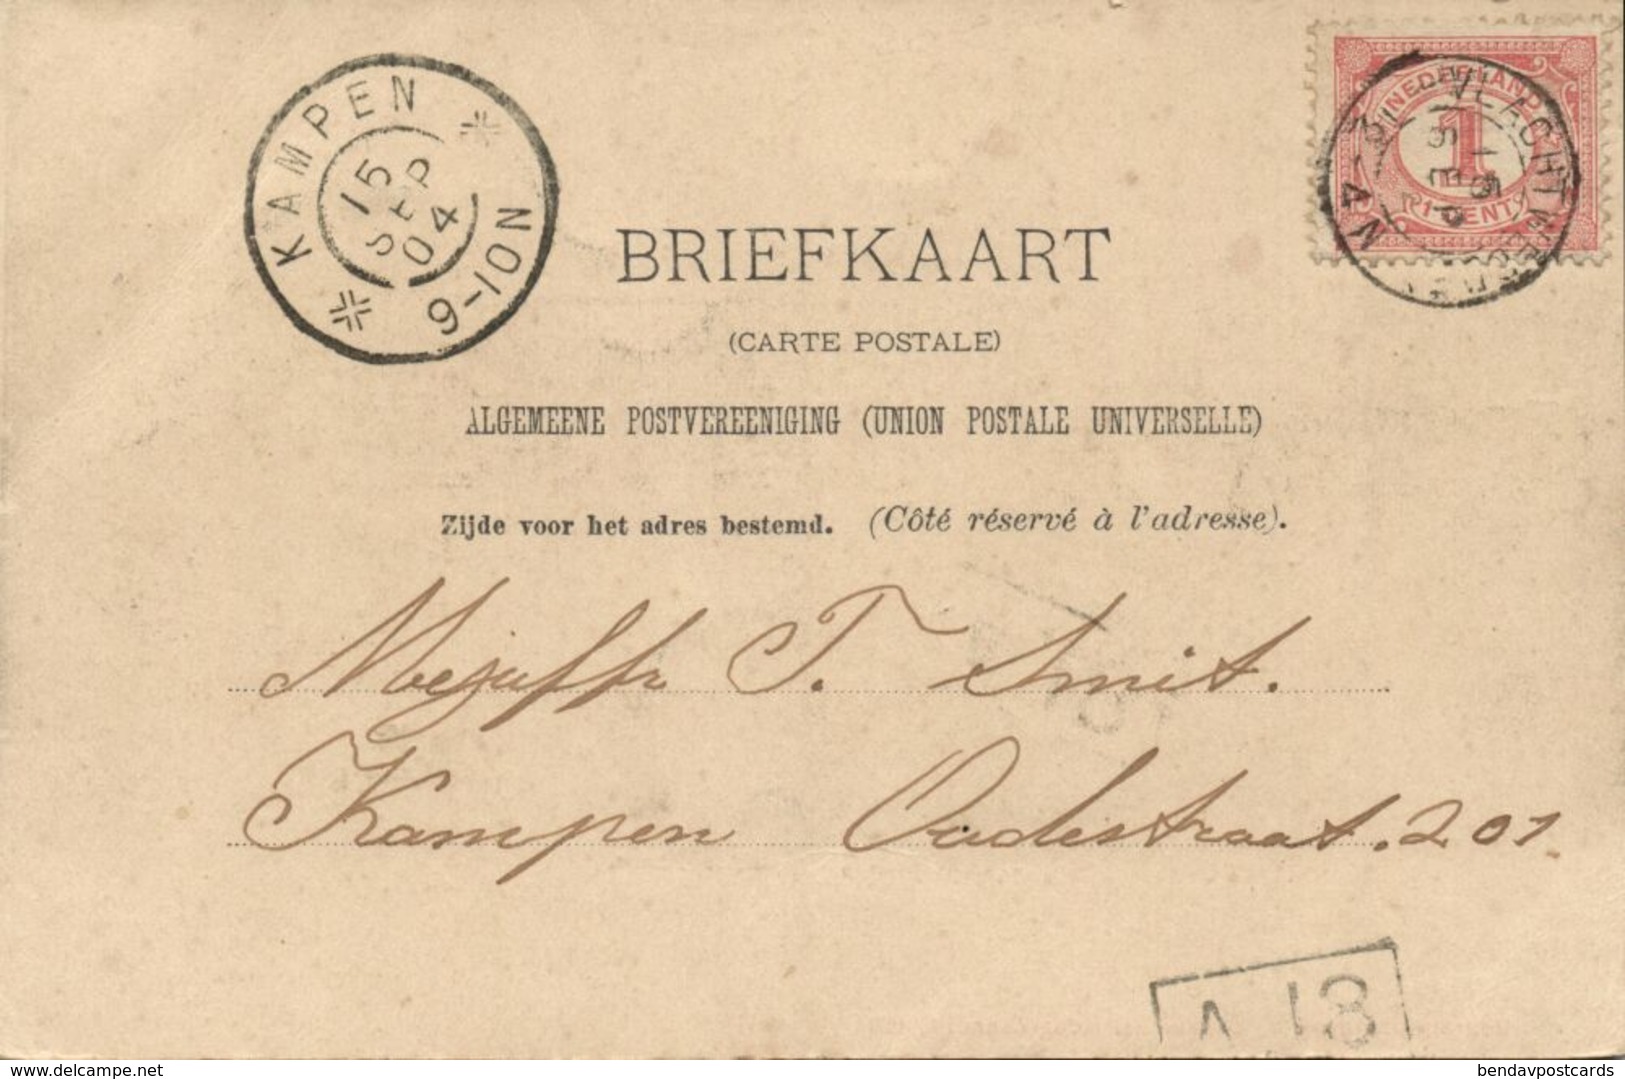 KAMPEN
15
SEP
04
9-10N
NEDERLAND
1
1 CENT
VLAGTWEDDE
15
SEP
3-4N
BRIEFKAART
(CARTE POSTALE)
ALGEMEENE POSTVEREENIGING (UNION POSTALE UNIVERSELLE)
Zijde voor het adres bestemd. (Côté réservé à l'adresse).
Mejuffr T. Smit.
Kampen Oudestraat. 201.
A 18
delcampe.net
bendavpostcards